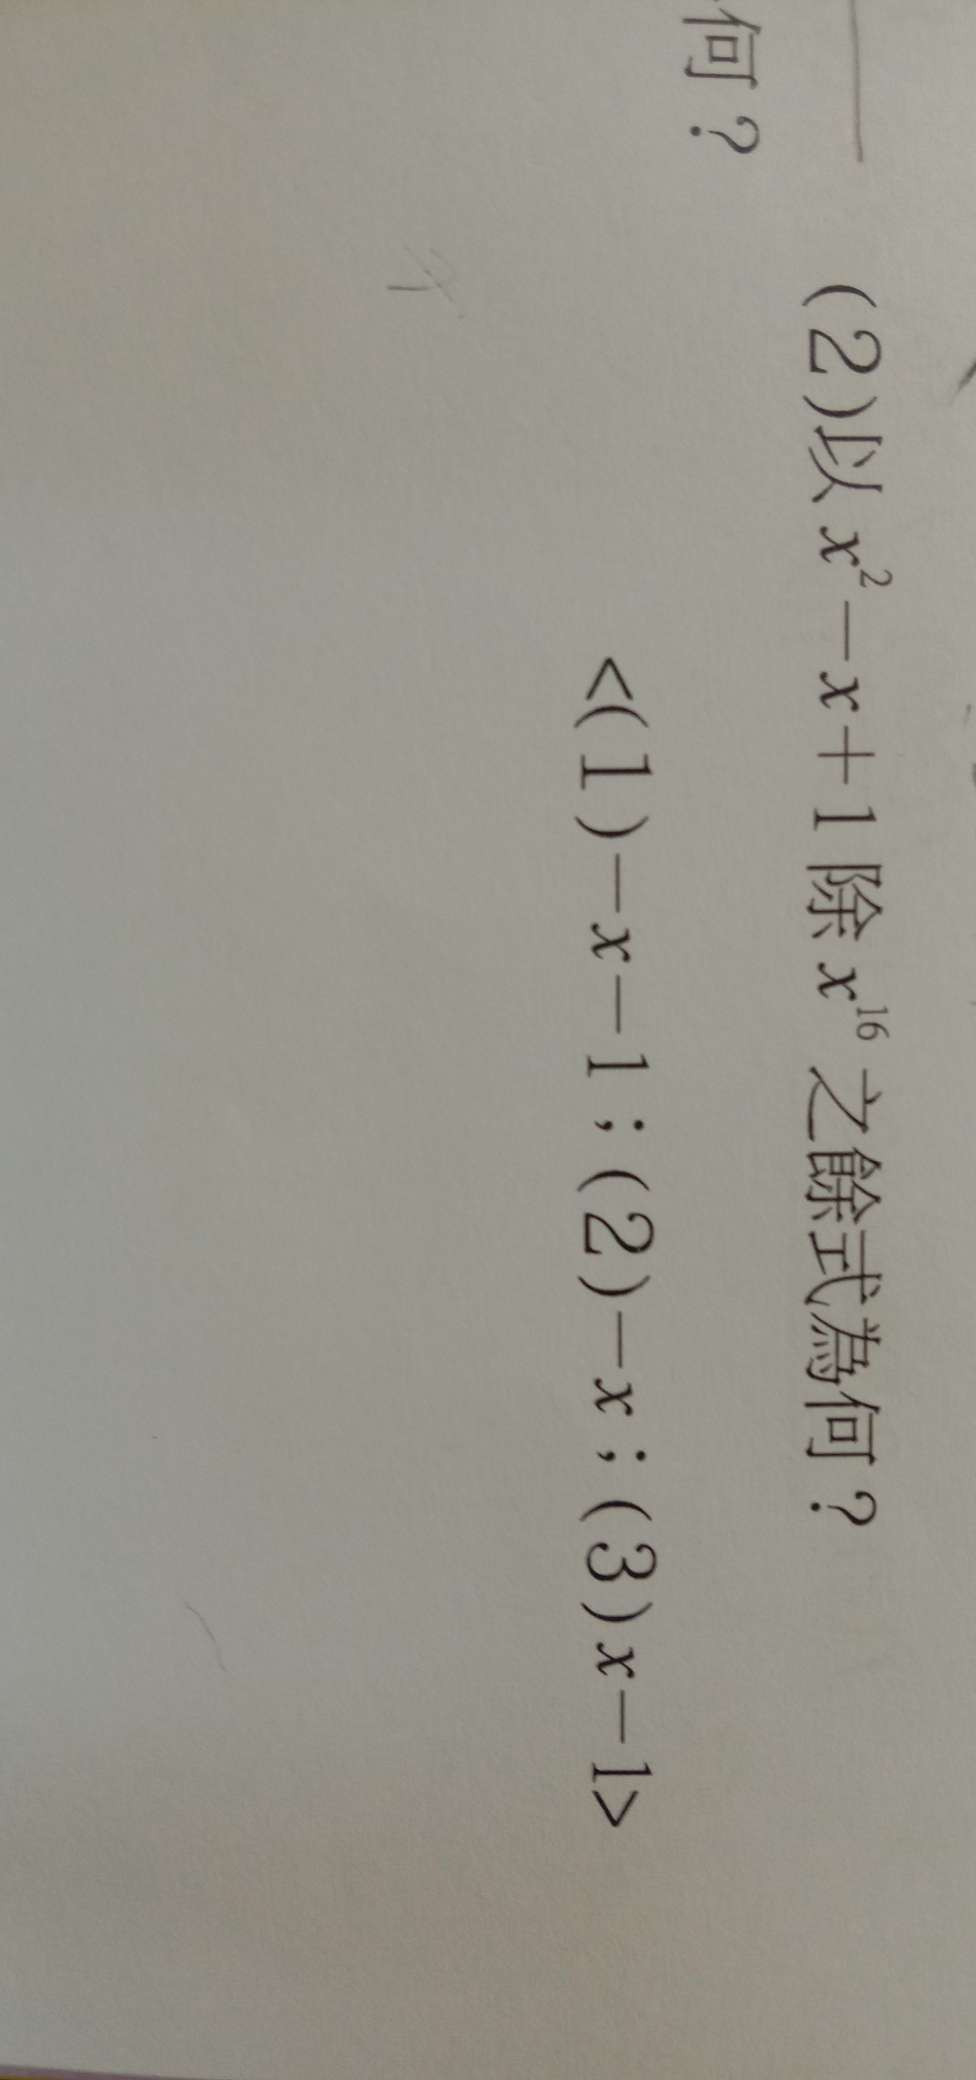 (2)以 x²－x＋1 除 x¹⁶ 之餘式為何？
何？
<(1)－x－1；(2)－x；(3)x－1>